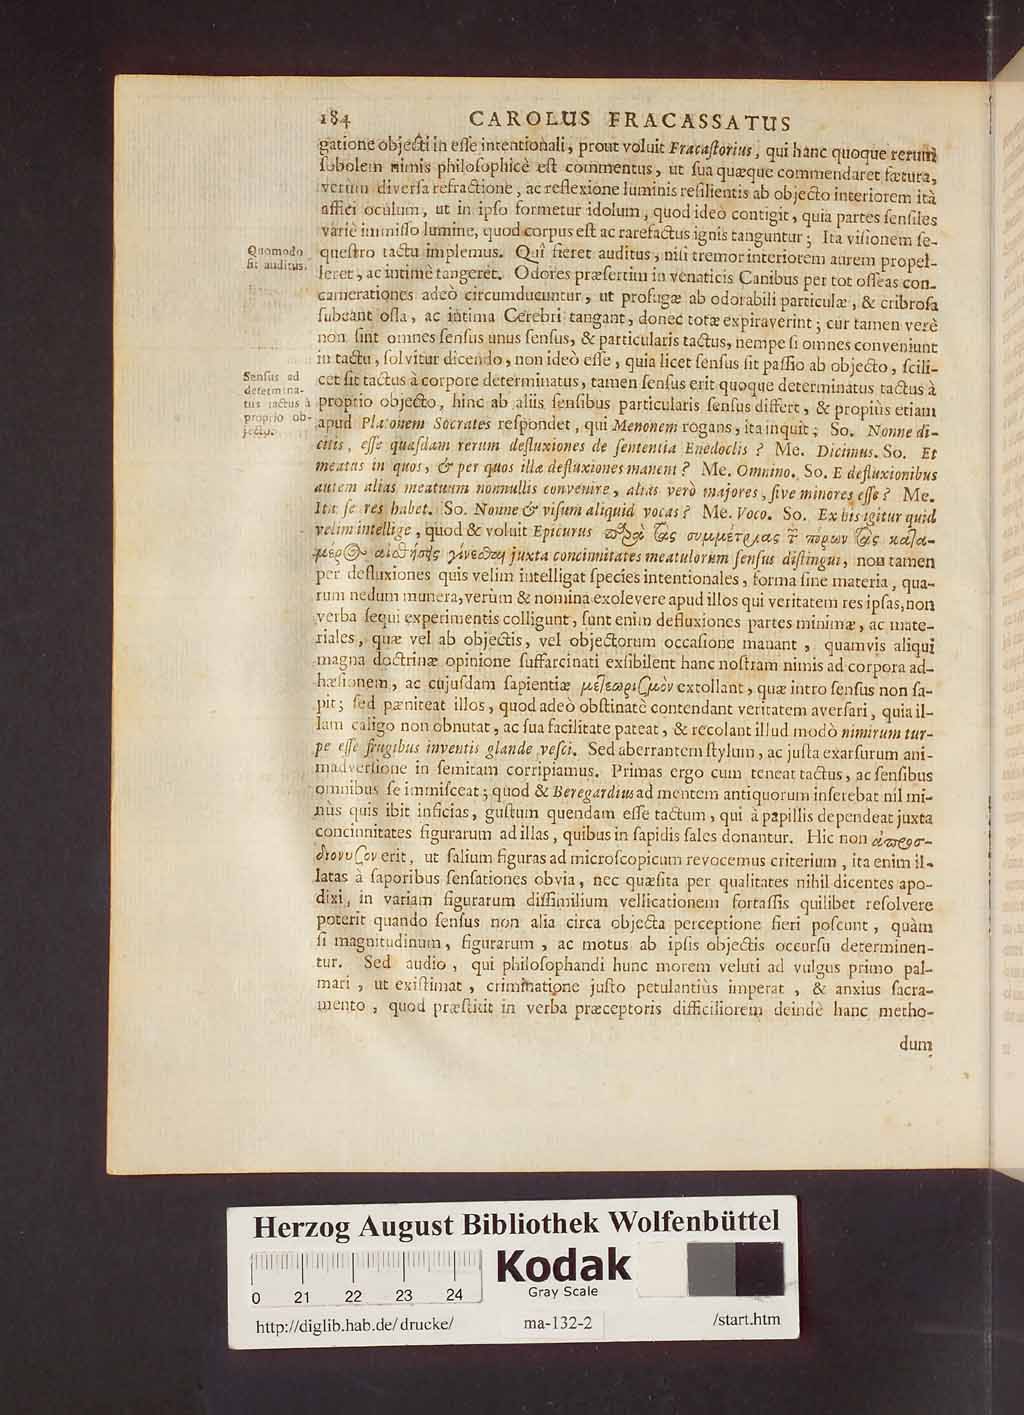 184 CAROLUS FRACASSATUS
gatione objecti in eſſe intentionali, prout voluit Fracaſtorius, qui hanc quoque rerum
ſobolem nimis philoſophicè eſt commentus, ut ſua quæque commendaret fætura,
verùm diverſa refractione, ac reflexione luminis reſilientis ab objecto interiorem ità
affici oculum, ut in ipſo formetur idolum, quod ideò contigit, quia partes ſenſiles
variè immiſſo lumine, quod corpus eſt ac rarefactus ignis tanguntur; Ita viſionem ſe-
Quomodo
fit auditus.
queſtro tactu implemus. Quî fieret auditus, niſi tremor interiorem aurem propel-
leret, ac intimè tangeret. Odores præſertim in venaticis Canibus per tot oſſeas con-
camerationes adeò circumducuntur, ut profugæ ab odorabili particulæ, & cribroſa
ſubeant oſſa, ac intima Cerebri tangant, donec totæ expiraverint; cur tamen verè
non ſint omnes ſenſus unus ſenſus, & particularis tactus, nempe ſi omnes conveniunt
in tactu, ſolvitur dicendo, non ideò eſſe, quia licet ſenſus ſit paſſio ab objecto, ſcili-
Senſus ad
determina-
tus tactus à
proprio ob-
jecto.
cet ſit tactus à corpore determinatus, tamen ſenſus erit quoque determinatus tactus à
proprio objecto, hinc ab aliis ſenſibus particularis ſenſus differt, & propiùs etiam
apud Platonem Socrates reſpondet, qui Menonem rogans, ita inquit; So. Nonne di-
citis, eſſe quaſdam rerum defluxiones de ſententia Enedoclis? Me. Dicimus. So. Et
meatus in quos, & per quos illæ defluxiones manent? Me. Omnino. So. E defluxionibus
autem alias meatuum nonnullis convenire, alias verò majores, ſive minores eſſe? Me.
Ita ſe res habet. So. Nonne & viſum aliquid vocas? Me. Voco. So. Ex his igitur quid
velim intellige, quod & voluit Epicurus παρὰ τὰς συμμέτριας τ πόρων τὰς καλα-
μέρος αἰσθήσῃς γίνεσθαι juxta concinnitates meatulorum ſenſus diſtingui, non tamen
per defluxiones quis velim intelligat ſpecies intentionales, forma ſine materia, qua-
rum nedum munera, verùm & nomina exolevere apud illos qui veritatem res ipſas, non
verba ſequi experimentis colligunt, ſunt enim defluxiones partes minimæ, ac mate-
riales, quæ vel ab objectis, vel objectorum occaſione manant, quamvis aliqui
magna doctrinæ opinione ſuffarcinati exſibilent hanc noſtram nimis ad corpora ad-
hæſionem, ac cujuſdam ſapientiæ μετεωριζμὸν extollant, quæ intro ſenſus non ſa-
pit; ſed pæniteat illos, quod adeò obſtinatè contendant veritatem averſari, quia il-
lam caligo non obnutat, ac ſua facilitate pateat, & recolant illud modò nimirum tur-
pe eſſe frugibus inventis glande veſci. Sed aberrantem ſtylum, ac juſta exarſurum ani-
madverſione in ſemitam corripiamus. Primas ergo cum teneat tactus, ac ſenſibus
omnibus ſe immiſceat; quod & Beregardius ad mentem antiquorum inferebat nil mi-
nùs quis ibit inficias, guſtum quendam eſſe tactum, qui à papillis dependeat juxta
concinnitates figurarum ad illas, quibus in ſapidis ſales donantur. Hic non ἀπροσ-
διονυζον erit, ut ſalium figuras ad microſcopicum revocemus criterium, ita enim il-
latas à ſaporibus ſenſationes obvia, nec quæſita per qualitates nihil dicentes apo-
dixi, in variam figurarum diſſimilium vellicationem fortaſſis quilibet reſolvere
poterit quando ſenſus non alia circa objecta perceptione fieri poſcunt, quàm
ſi magnitudinum, figurarum, ac motus ab ipſis objectis occurſu determinen-
tur. Sed audio, qui philoſophandi hunc morem veluti ad vulgus primo pal-
mari, ut exiſtimat, criminatione juſto petulantiùs imperat, & anxius ſacra-
mento, quod præſtitit in verba præceptoris difficiliorem deindè hanc metho-
dum
Herzog August Bibliothek Wolfenbüttel
0 21 22 23 24
Kodak
Gray Scale
http://diglib.hab.de/drucke/ ma-132-2 /start.htm